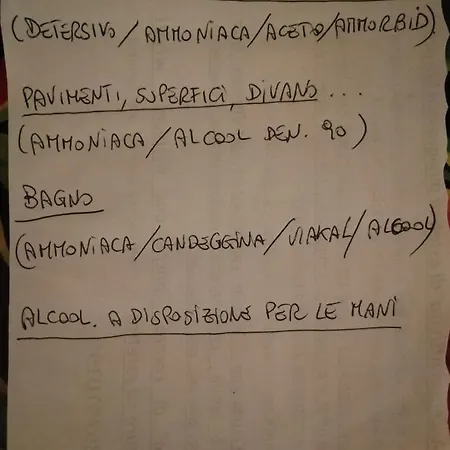 (DETERSIVO/AMMONIACA/ACETO/AMMORBID)
PAVIMENTI, SUPERFICI, DIVANO...
(AMMONIACA/ALCOOL DEN. 90)
BAGNO
(AMMONIACA/CANDEGGINA/VIAKAL/ALCOOL)
ALCOOL. A DISPOSIZIONE PER LE MANI